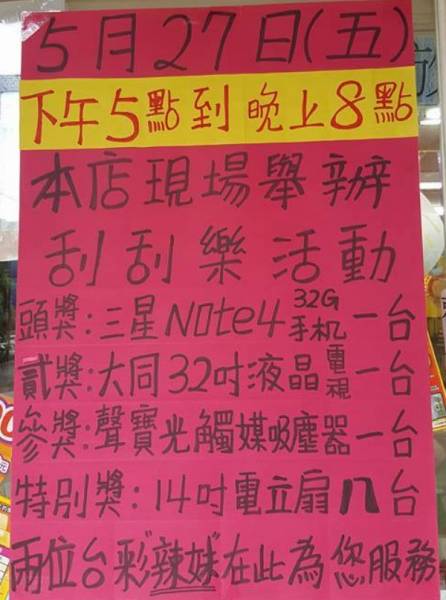 5月27日(五)
下午5點到晚上8點
本店現場舉辦
刮刮樂活動
頭獎:三星Note4 32G手机一台
貳獎:大同32吋液晶電視一台
參獎:聲寶光觸媒吸塵器一台
特別獎:14吋電立扇八台
兩位台彩"辣妹"在此為您服務